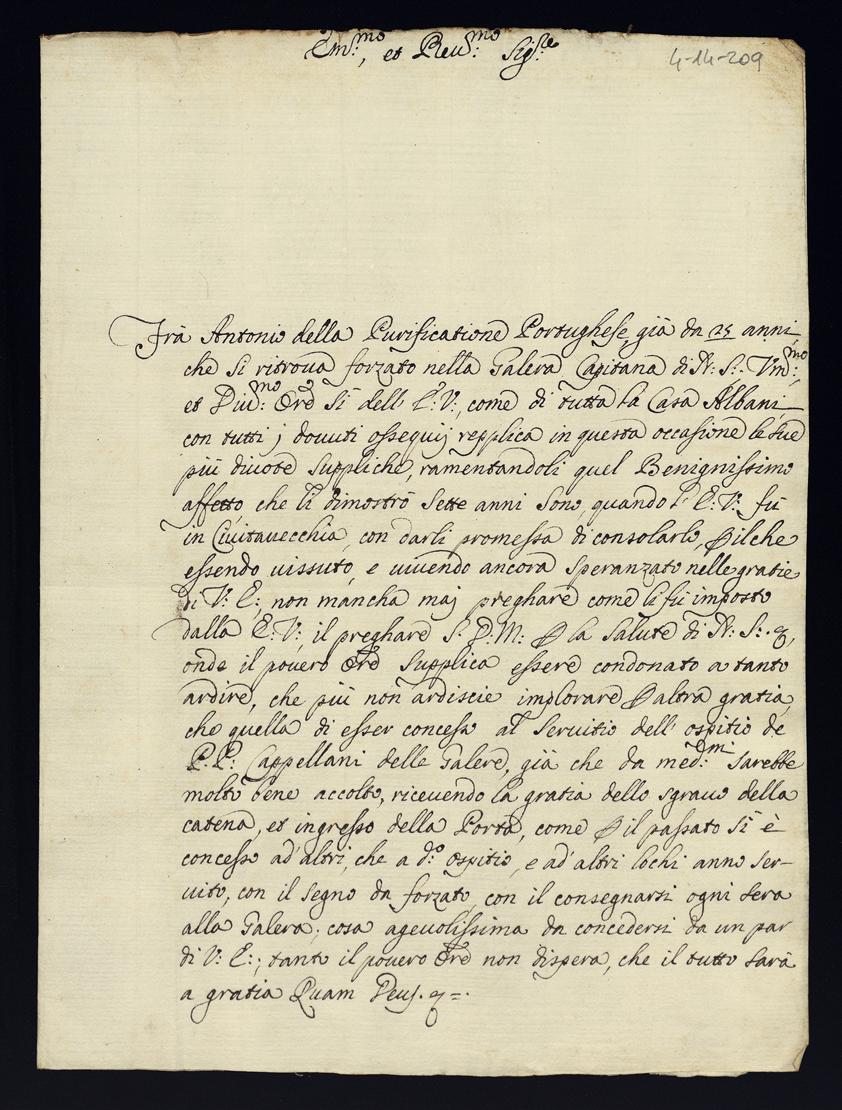 Em:mo, et Reu:mo Sig:re
4-14-209
Frà Antonio della Purificatione Portughese già da 25 anni
che si ritroua forzato nella Galera Capitana di N: S: Vm:mo,
et Diu:mo Ore sì dell' E: V:, come di tutta la Casa Albani
con tutti j douuti ossequij repplica in questa occasione le sue
più diuote suppliche, ramentandoli quel Benignissimo
affetto che li dimostrò sette anni sono, quando l' E: V: fù
in Ciuitauecchia, con darli promessa di consolarlo, P ilche
essendo uissuto, e uiuendo ancora speranzato nelle gratie
di V: E:, non mancha maj preghare come li fù imposto
dalla E: V:, il preghare S: D: M: P la salute di N: S: &,
onde il pouero Ore supplica essere condonato a tanto
ardire, che più non ardiscie implorare P altra gratia,
che quella di esser concesso al seruitio dell' ospitio de
P: P: Cappellani delle Galere, già che da med:mi sarebbe
molto bene accolto, riceuendo la gratia dello sgrauo della
catena, et ingresso della Porta, come P il passato si è
concesso ad' altri, che a d:o ospitio, e ad' altri lochi anno ser-
uito, con il segno da forzato, con il consegnarsi ogni sera
alla Galera; cosa ageuolissima da concedersi da un par
di V: E:; tanto il pouero Ore non dispera, che il tutto sarà
a gratia Quam Deus. & =.